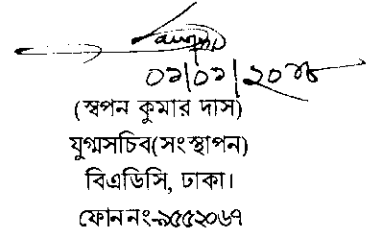 ০১/০১/২০১৮
(স্বপন কুমার দাস)
যুগ্মসচিব(সংস্থাপন)
বিএডিসি, ঢাকা।
ফোননং-৯৫৫২০৬৭